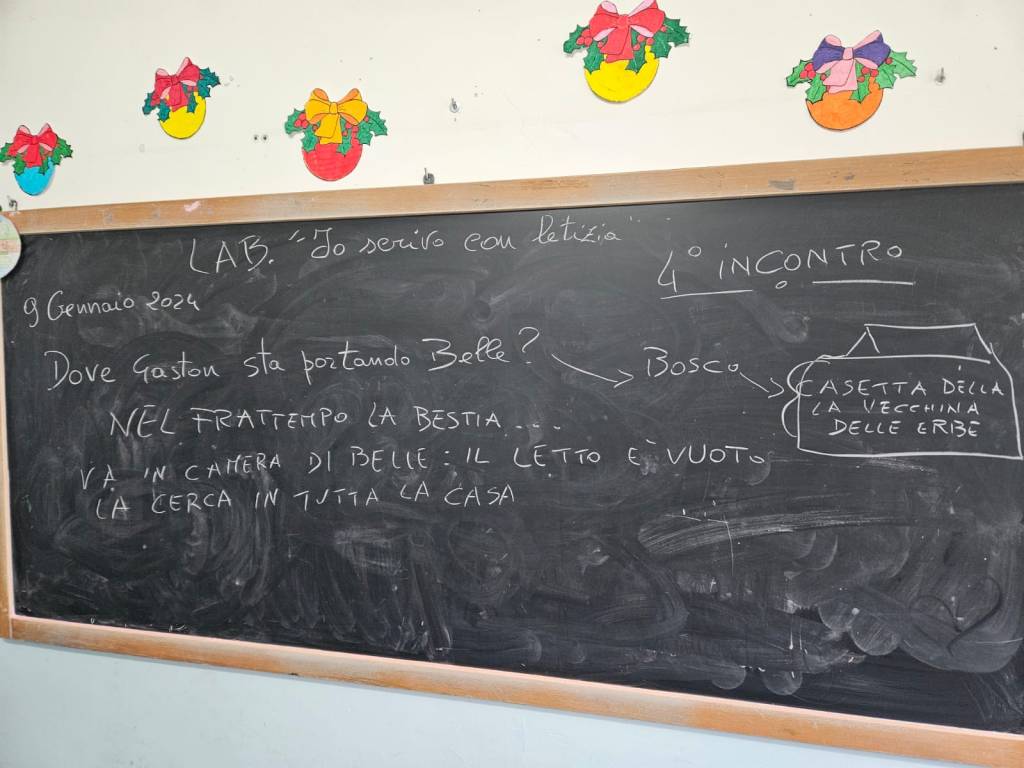 LAB. "Io scrivo con letizia"
4° INCONTRO
9 Gennaio 2024
Dove Gaston sta portando Belle? → BOSCO →
CASETTA DELLA
LA VECCHINA
DELLE ERBE
NEL FRATTEMPO LA BESTIA....
VA IN CAMERA DI BELLE: IL LETTO È VUOTO
LA CERCA IN TUTTA LA CASA